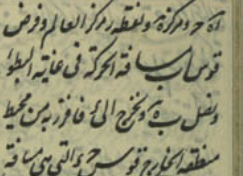 ح ومركزه ونقطة ز مركز العالم وفرض
قوس اب مسافة الحركة فى غاية البطؤ
ونصل ب ه ونخرج الى فافرز به من محيط
منطقة الخارج قوس ح ء التى هى مسافة